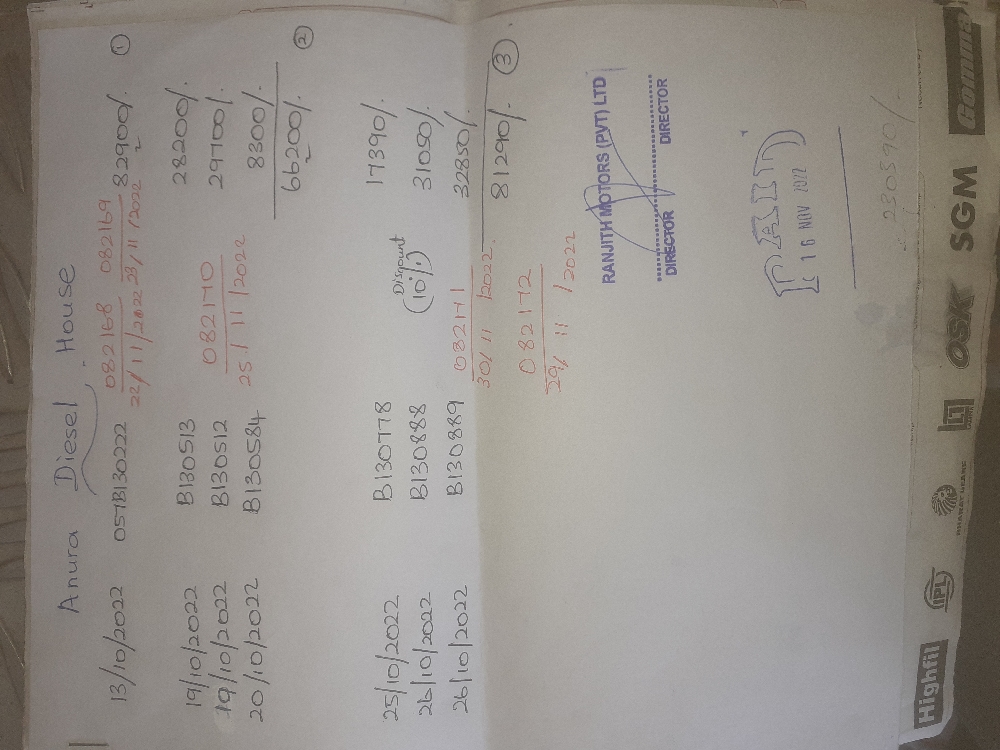 Anura Diesel House
13/10/2022 057B130222 082168 082169 82900/. ①
22/11/2022 23/11/2022
19/10/2022 B130513 28200/.
19/10/2022 B130512 082170 29700/.
20/10/2022 B130584 25/11/2022 8300/.
66200/. ②
25/10/2022 B130778 17390/.
26/10/2022 B130888 Discount (10%) 31050/.
26/10/2022 B130889 082171 32850/.
30/11/2022 81290/. ③
082172
29/11/2022
RANJITH MOTORS (PVT) LTD
DIRECTOR DIRECTOR
PAID
16 NOV 2022
230390/.
Highfil IPL BHARAT GEARS OSK SGM